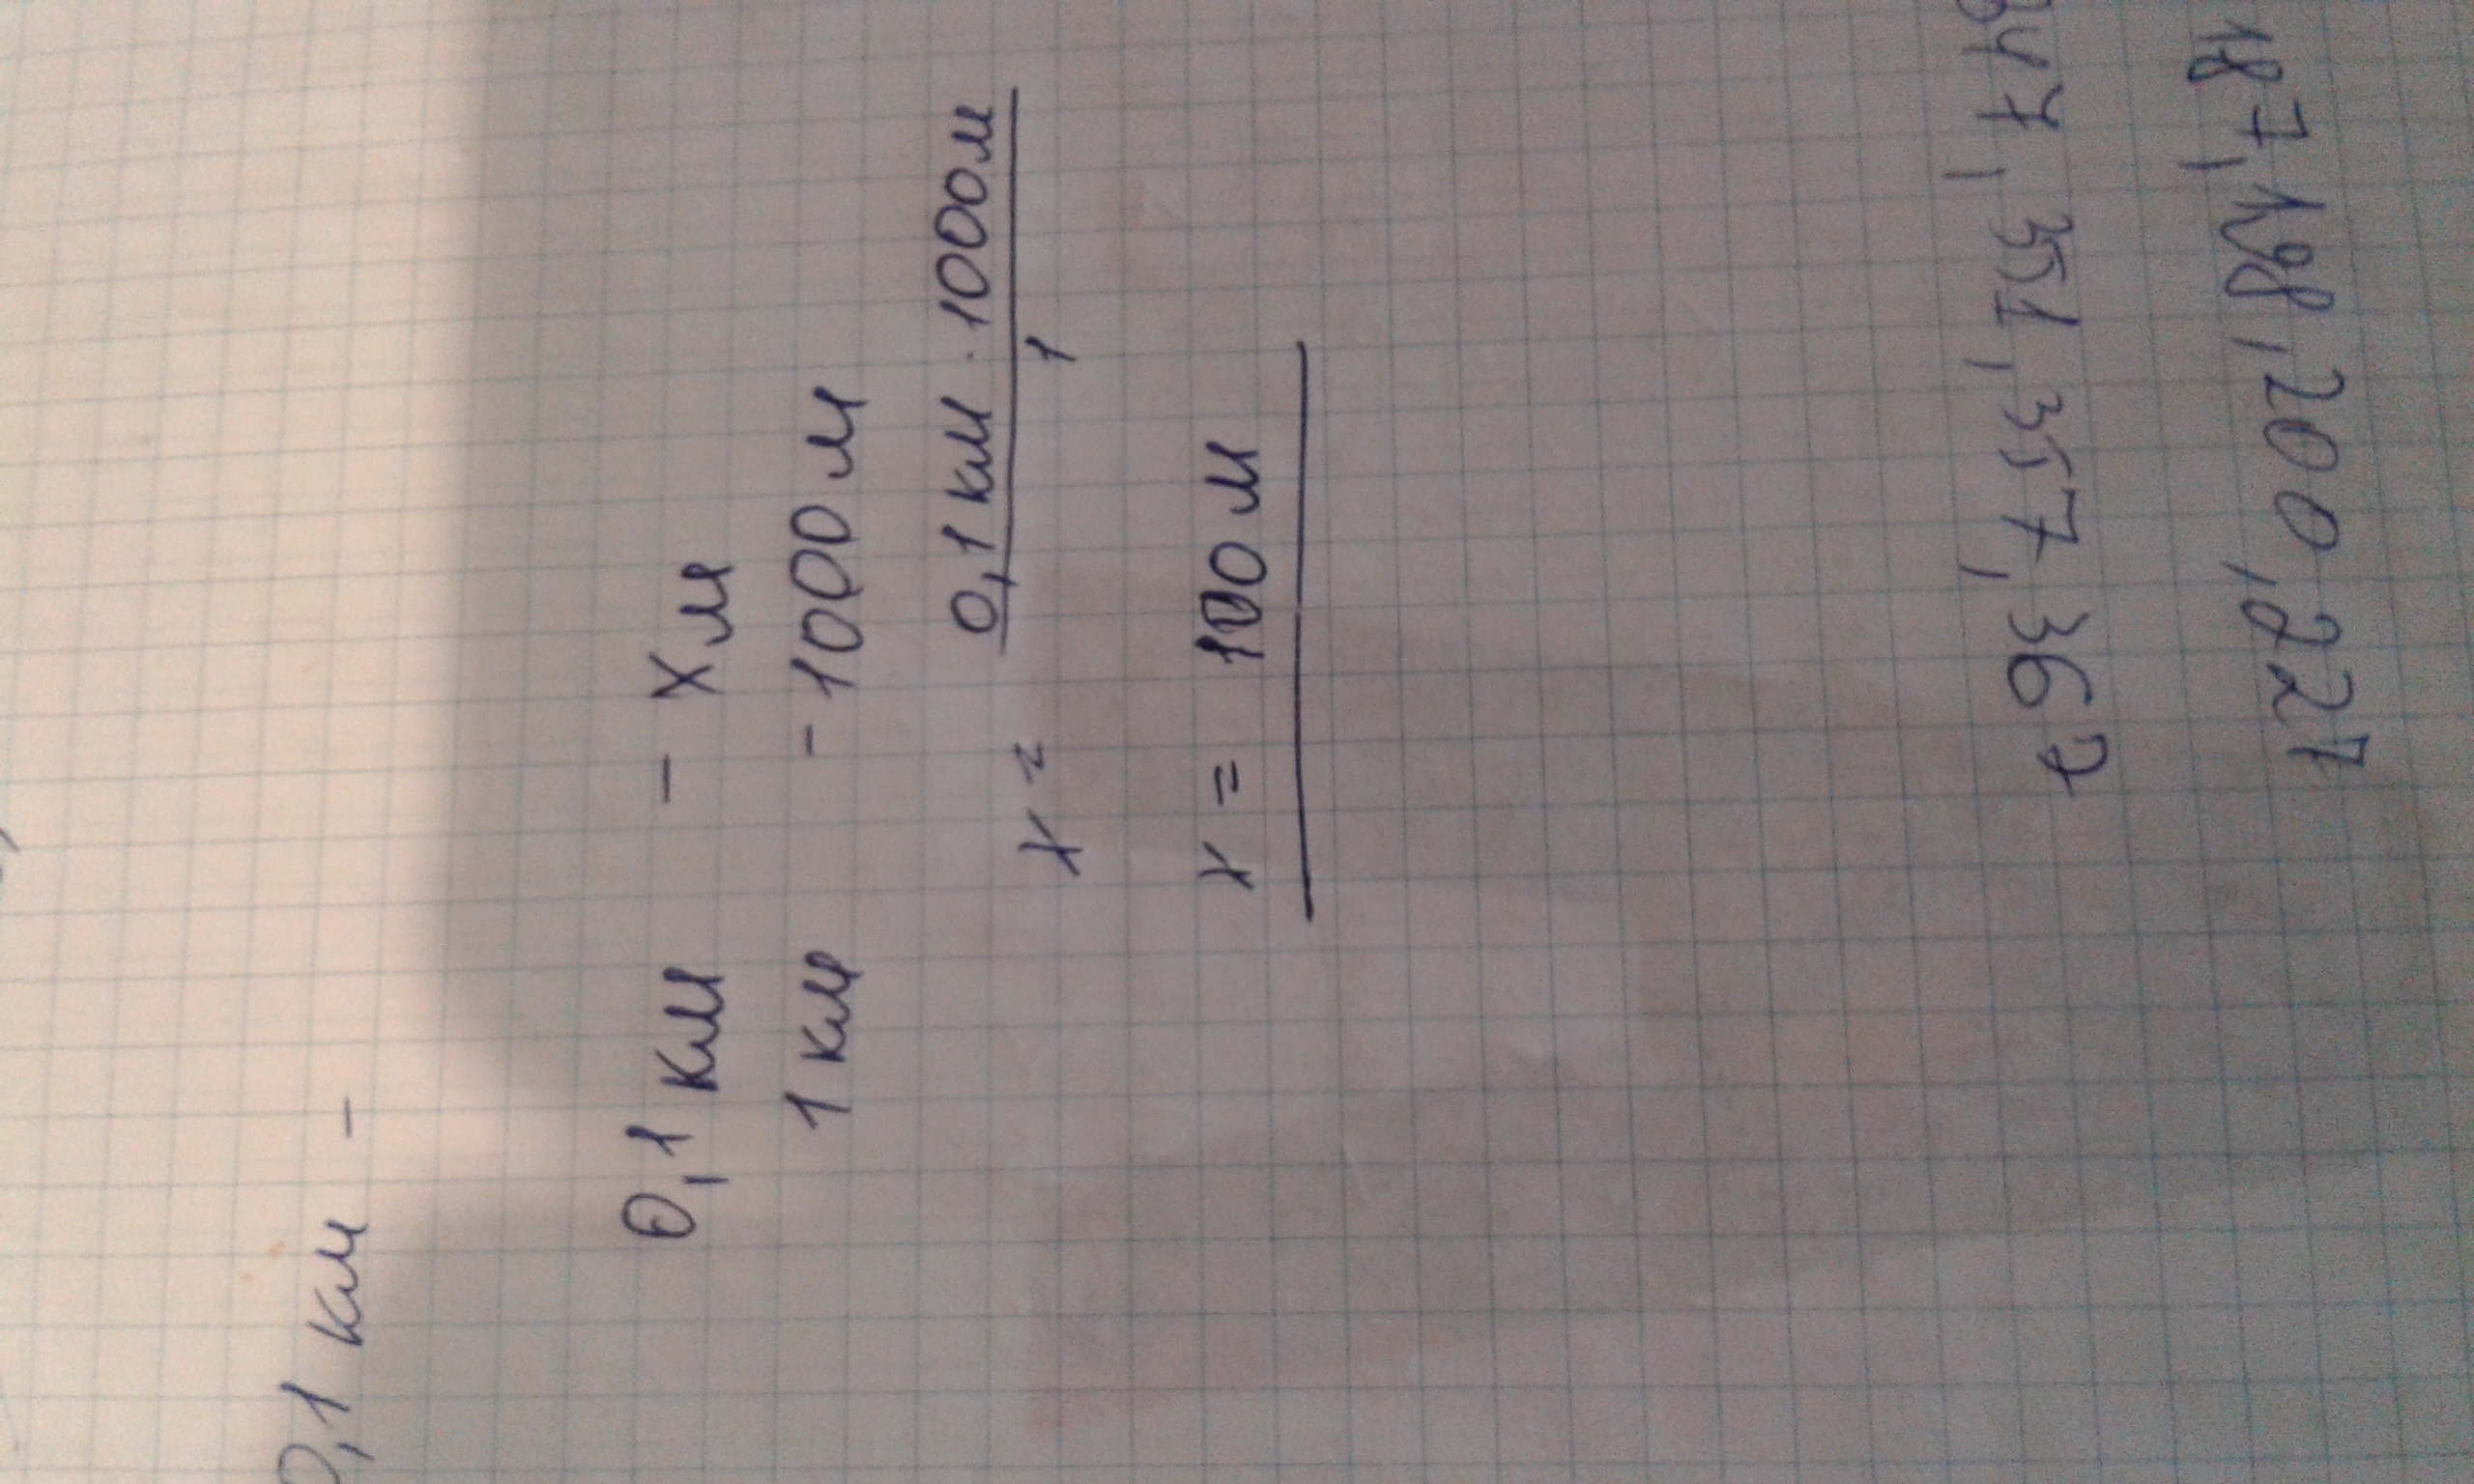 0,1 км -
0,1 км - х м
1 км - 1000 м
х = 0,1 км · 1000 м
1
х = 100 м
351, 357, 367
187, 198, 200, 221